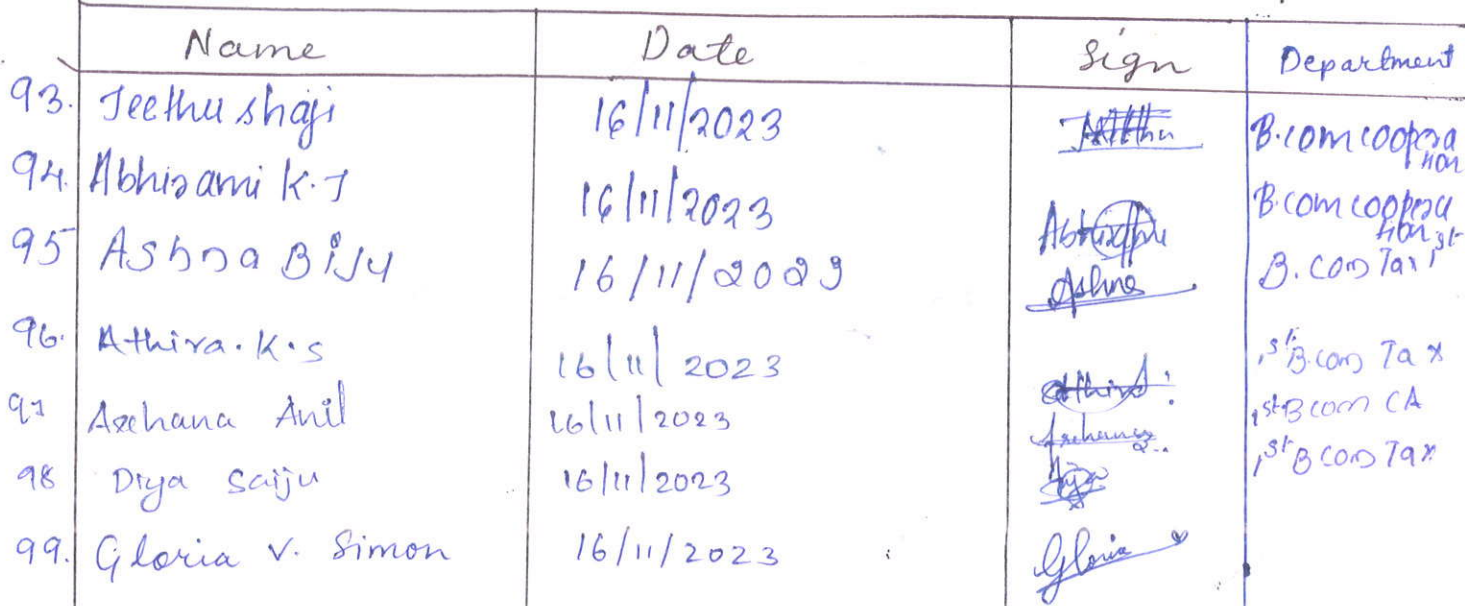 Name Date Sign Department
93. Jeethu shaji 16/11/2023 Jeethu B.com coopera
tion
94. Abhirami K.J 16/11/2023 B.com coopera
tion
95 Ashna Biju 16/11/2023 Ashna B.com Tax 1st
96. Athira.K.S 16/11/2023 Athira 1st B.com Tax
97 Archana Anil 16/11/2023 Archana 1st B com CA
98 Diya Saiju 16/11/2023 Diya 1st B com Tax
99. Gloria V. Simon 16/11/2023 Gloria